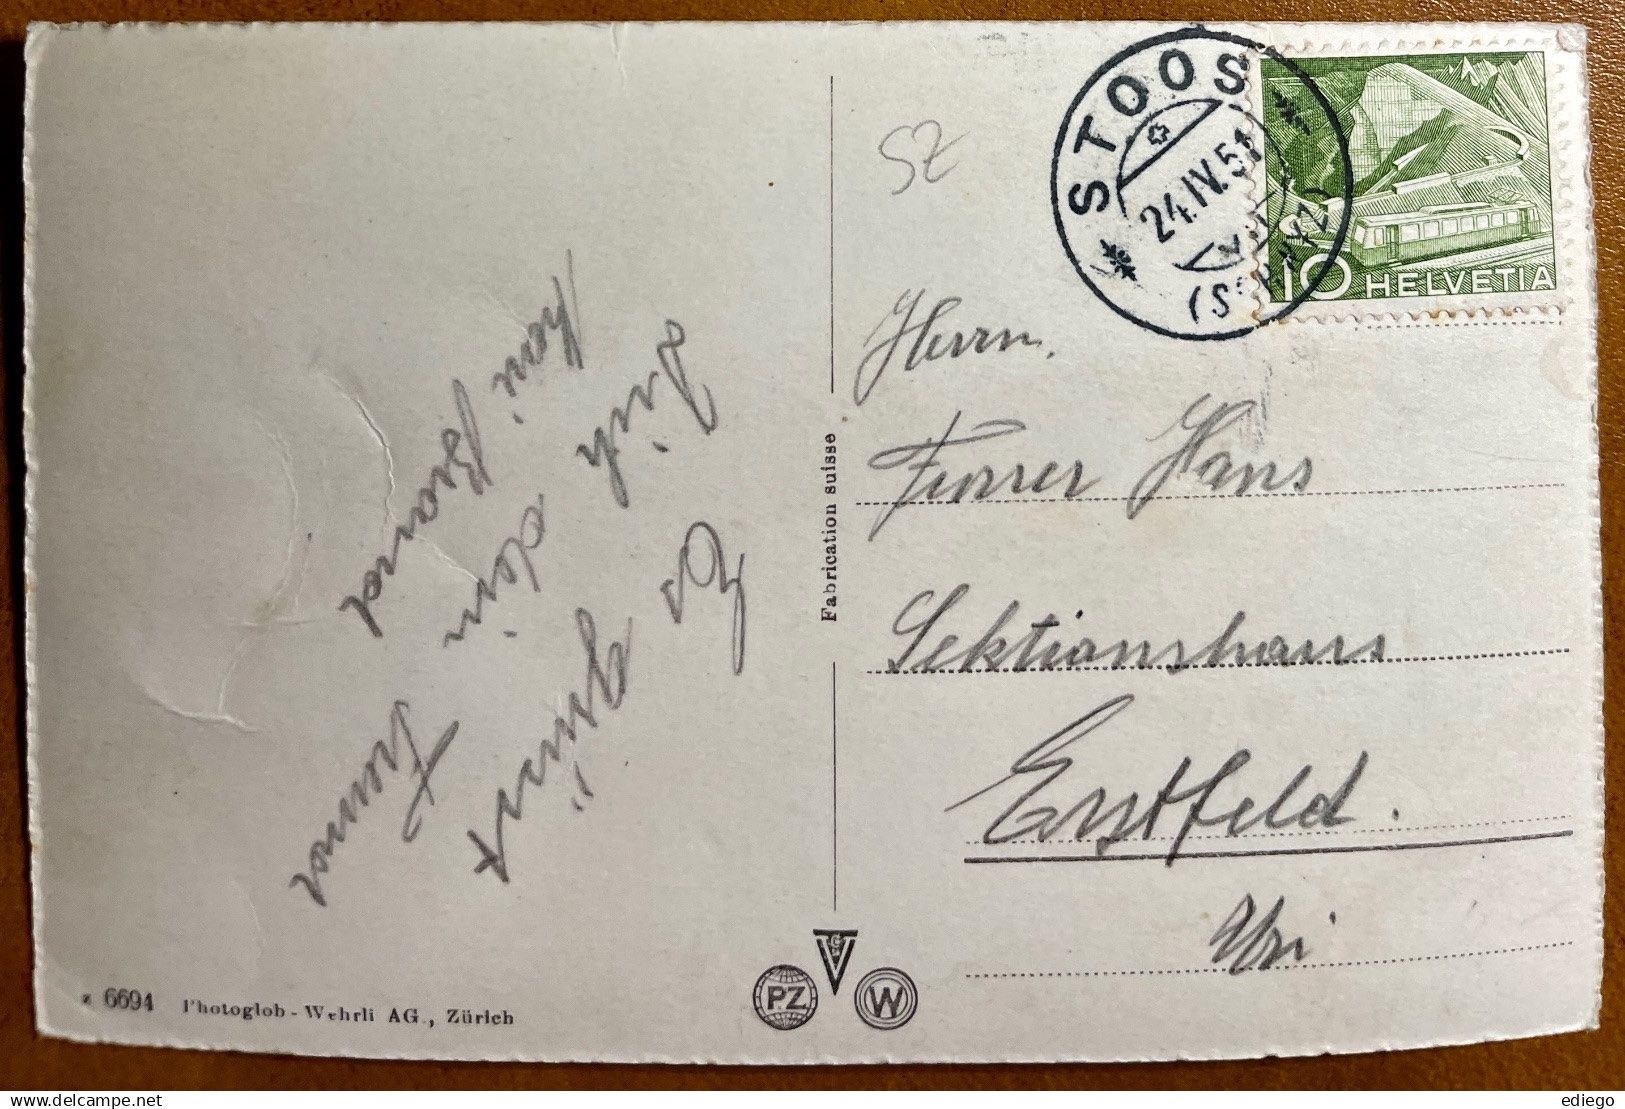 Es
grüsst
Dich
dein
Freund
Heini Brand
SZ
STOOS
24.IV.51
(SCHWYZ)
10 HELVETIA
Herrn.
Furrer Hans
Sektionshaus
Erstfeld.
Uri
Fabrication suisse
PZ
W
6694 Photoglob - Wehrli AG., Zürich
delcampe.net
ediego